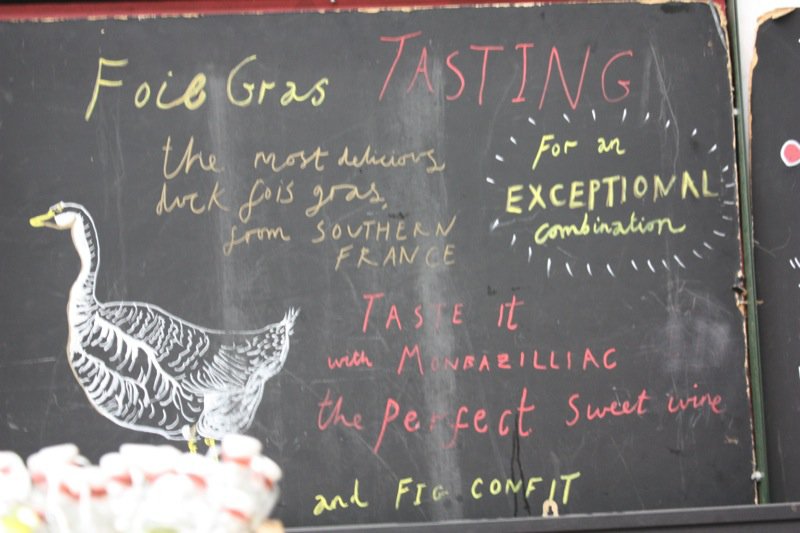 Foie Gras TASTING
the most delicious
duck fois gras,
from SOUTHERN
FRANCE
For an
EXCEPTIONAL
combination
TASTE It
with MONBAZILLIAC
the perfect sweet wine
and FIG CONFIT